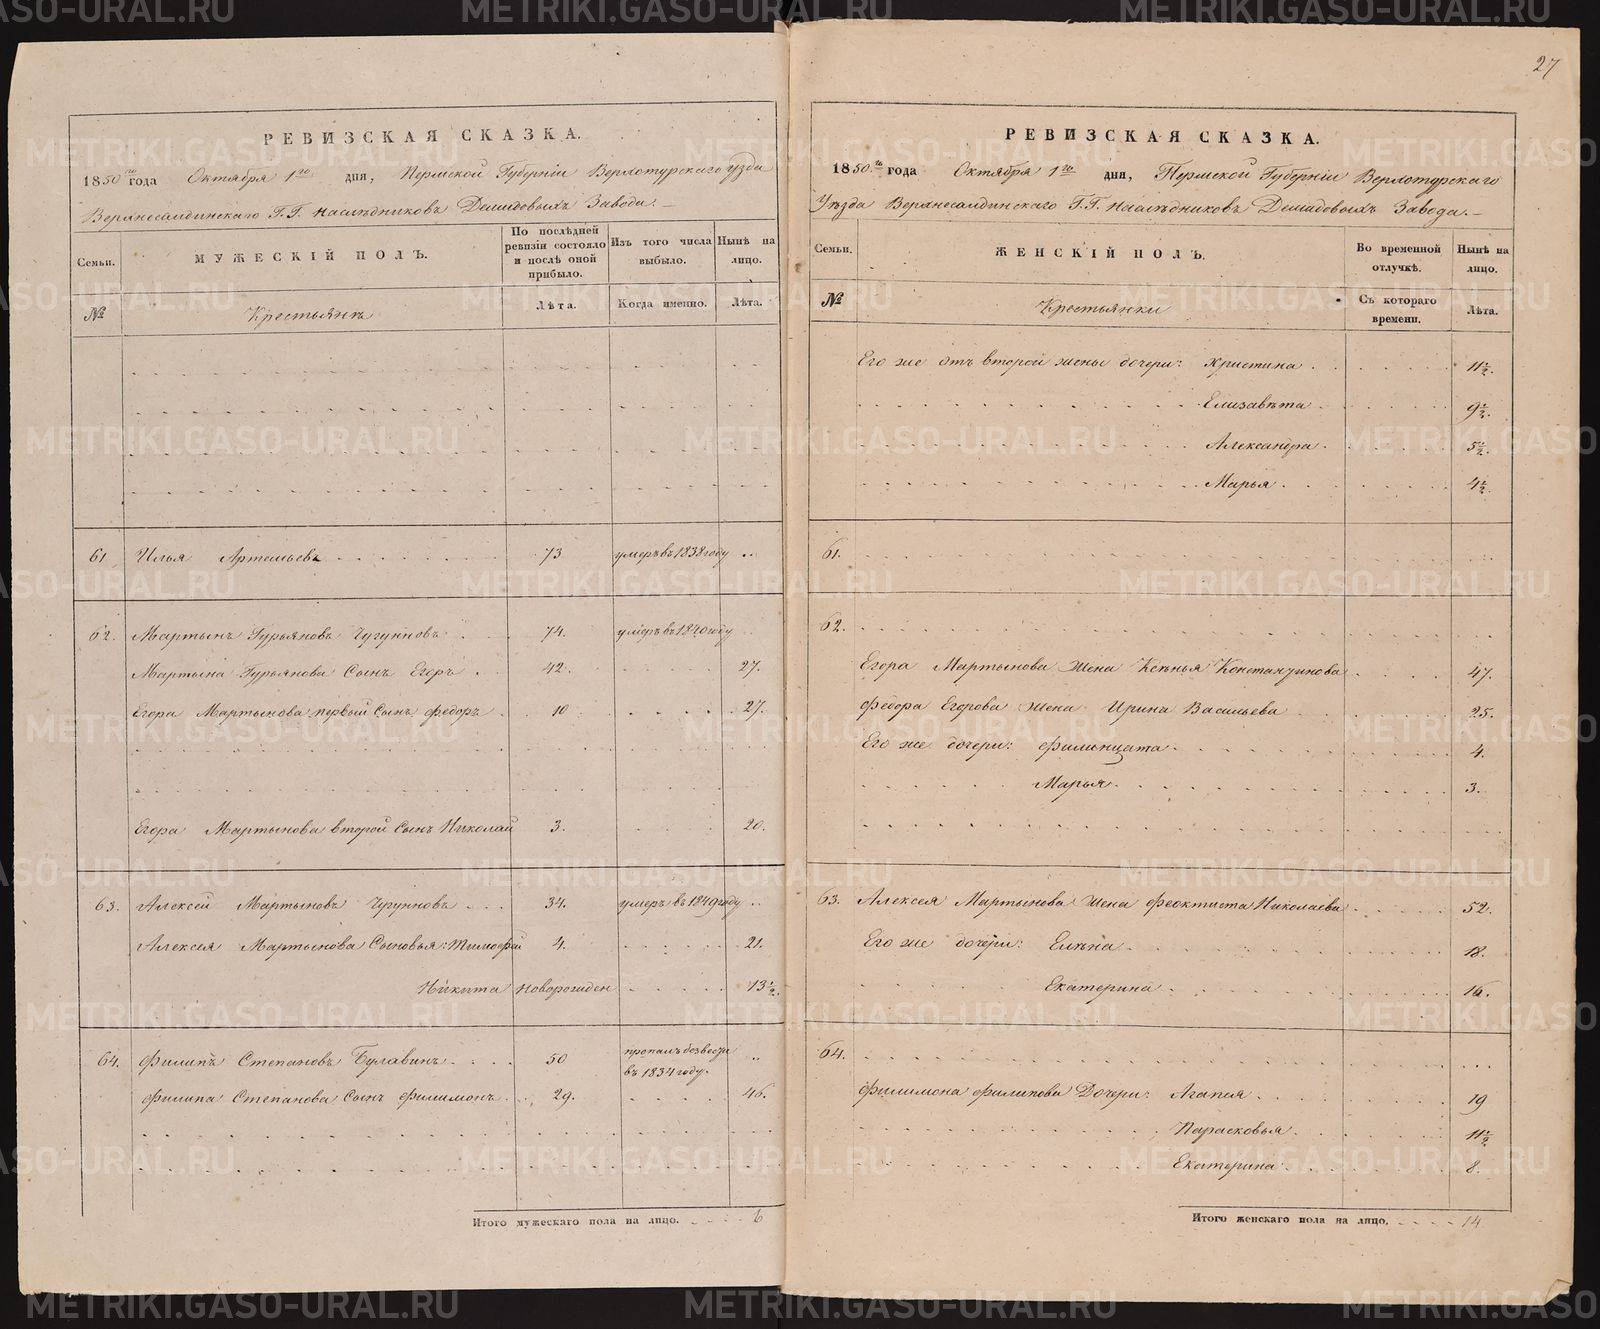 РЕВИЗСКАЯ СКАЗКА.
1850го года Октября 1го дня, Пермской Губерніи Верхотурскаго уѣзда
Верхнесалдинскаго Г.Г. Наслѣдниковъ Демидовыхъ Завода.
Семьи.
МУЖЕСКІЙ ПОЛЪ.
По послѣдней ревизіи состояло и послѣ оной прибыло.
Изъ того числа выбыло.
Нынѣ на лицо.
№
Крестьянъ
Лѣта.
Когда именно.
Лѣта.
61 Илья Артемьевъ 73 умеръ въ 1838 году
62. Мартынъ Гурьяновъ Чугуновъ 74. умеръ въ 1840 году
Мартына Гурьянова Сынъ Егоръ 42. 27.
Егора Мартынова первый Сынъ Федоръ 10 27.
Егора Мартынова второй Сынъ Николай 3. 20.
63. Алексей Мартыновъ Чугуновъ 34. умеръ въ 1849 году
Алексея Мартынова Сыновья: Тимофей 4. 21.
Никита Новорожден 13½.
64. Филипъ Степановъ Булавинъ 50 пропалъ безвести
въ 1834 году.
Филипа Степанова Сынъ Филимонъ 29. 46.
Итого мужескаго пола на лицо. 6
27
РЕВИЗСКАЯ СКАЗКА.
1850го года Октября 1го дня, Пермской Губерніи Верхотурскаго
Уѣзда Верхнесалдинскаго Г.Г. Наслѣдниковъ Демидовыхъ Завода.
Семьи.
ЖЕНСКІЙ ПОЛЪ.
Во временной отлучкѣ.
Нынѣ на лицо.
№
Крестьянки
Съ котораго времени.
Лѣта.
Его же отъ второй жены дочери: Христина 11½.
Елизавѣта 9½.
Александра 5½.
Марья 4½.
61.
62.
Егора Мартынова Жена Ксенья Константинова 47.
Федора Егорова Жена Ирина Васильева 25.
Его же дочери: Филинцата 4.
Марья 3.
63. Алексея Мартынова Жена Феоктиста Николаева 52.
Его же дочери: Елѣна 18.
Екатерина 16.
64.
Филимона Филипова Дочери: Агапия 19
Парасковья 11½
Екатерина 8.
Итого женскаго пола на лицо. 14
METRIKI.GASO-URAL.RU